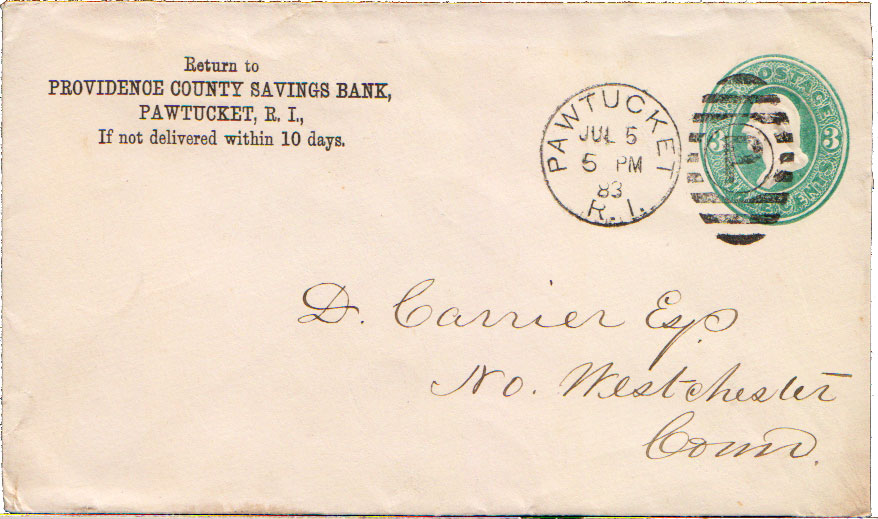 Return to
PROVIDENCE COUNTY SAVINGS BANK,
PAWTUCKET, R. I.,
If not delivered within 10 days.
PAWTUCKET
JUL 5
5 PM
83
R. I.
POSTAGE
3 3
D. Carrier Esq
No. Westchester
Conn.